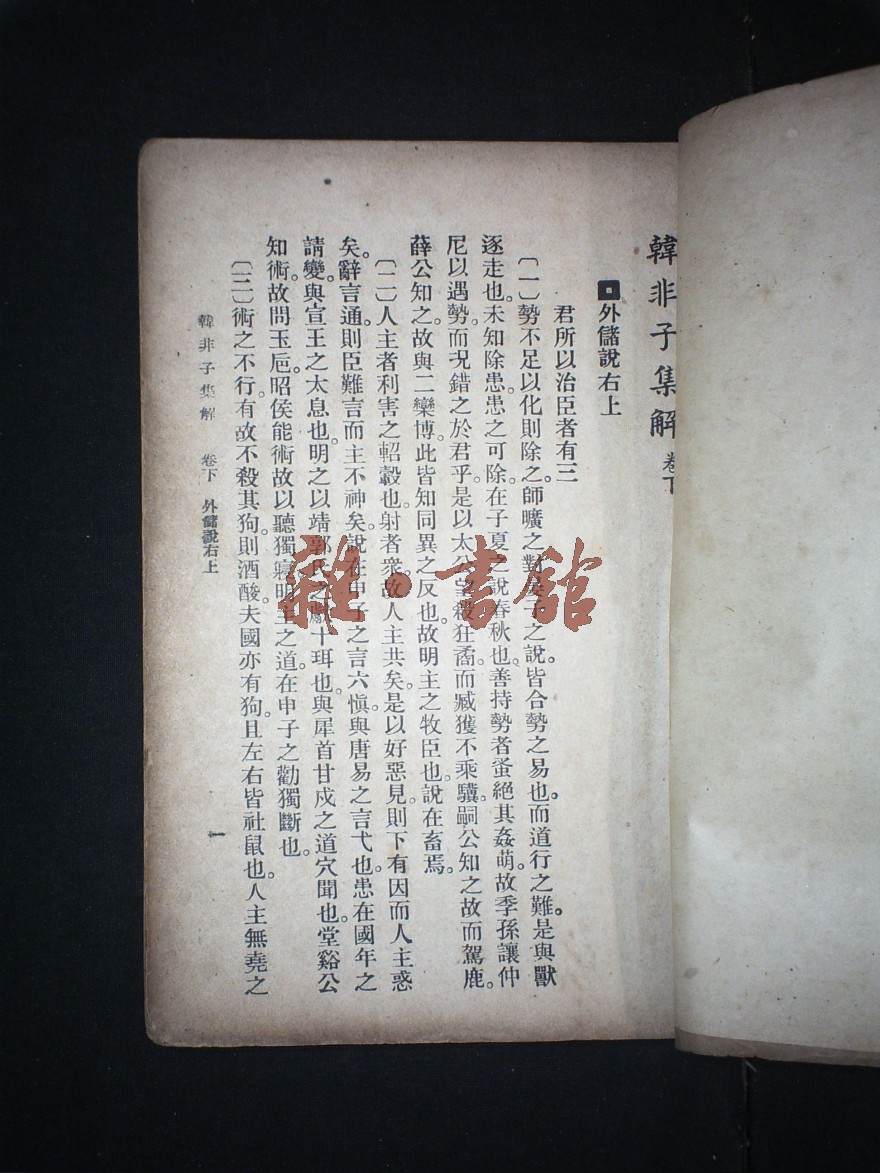 韓非子集解 卷下
外儲說右上
君所以治臣者有三
〔一〕勢不足以化則除之。師曠之對晏子之說。皆合勢之易也。而道行之難。是與獸
逐走也。未知除患。患之可除。在子夏之說春秋也。善持勢者蚤絕其姦萌。故季孫讓仲
尼以遇勢。而況錯之於君乎。是以太公望殺狂矞。而臧獲不乘驥。嗣公知之。故而駕鹿。
薛公知之。故與二欒博。此皆知同異之反也。故明主之牧臣也。說在畜焉。
〔二〕人主者。利害之軺轂也。射者衆。故人主共矣。是以好惡見。則下有因。而人主惑
矣。辭言通。則臣難言。而主不神矣。說在申子之言六愼。與唐易之言弋也。患在國年之
請變。與宣王之太息也。明之以靖郭氏之獻十珥也。與犀首甘戍之道穴聞也。堂谿公
知術。故問玉巵。昭侯能術。故以聽獨寢。明主之道。在申子之勸獨斷也。
〔三〕術之不行。有故。不殺其狗。則酒酸。夫國亦有狗。且左右皆社鼠也。人主無堯之
韓非子集解 卷下 外儲說右上
一
雜·書館